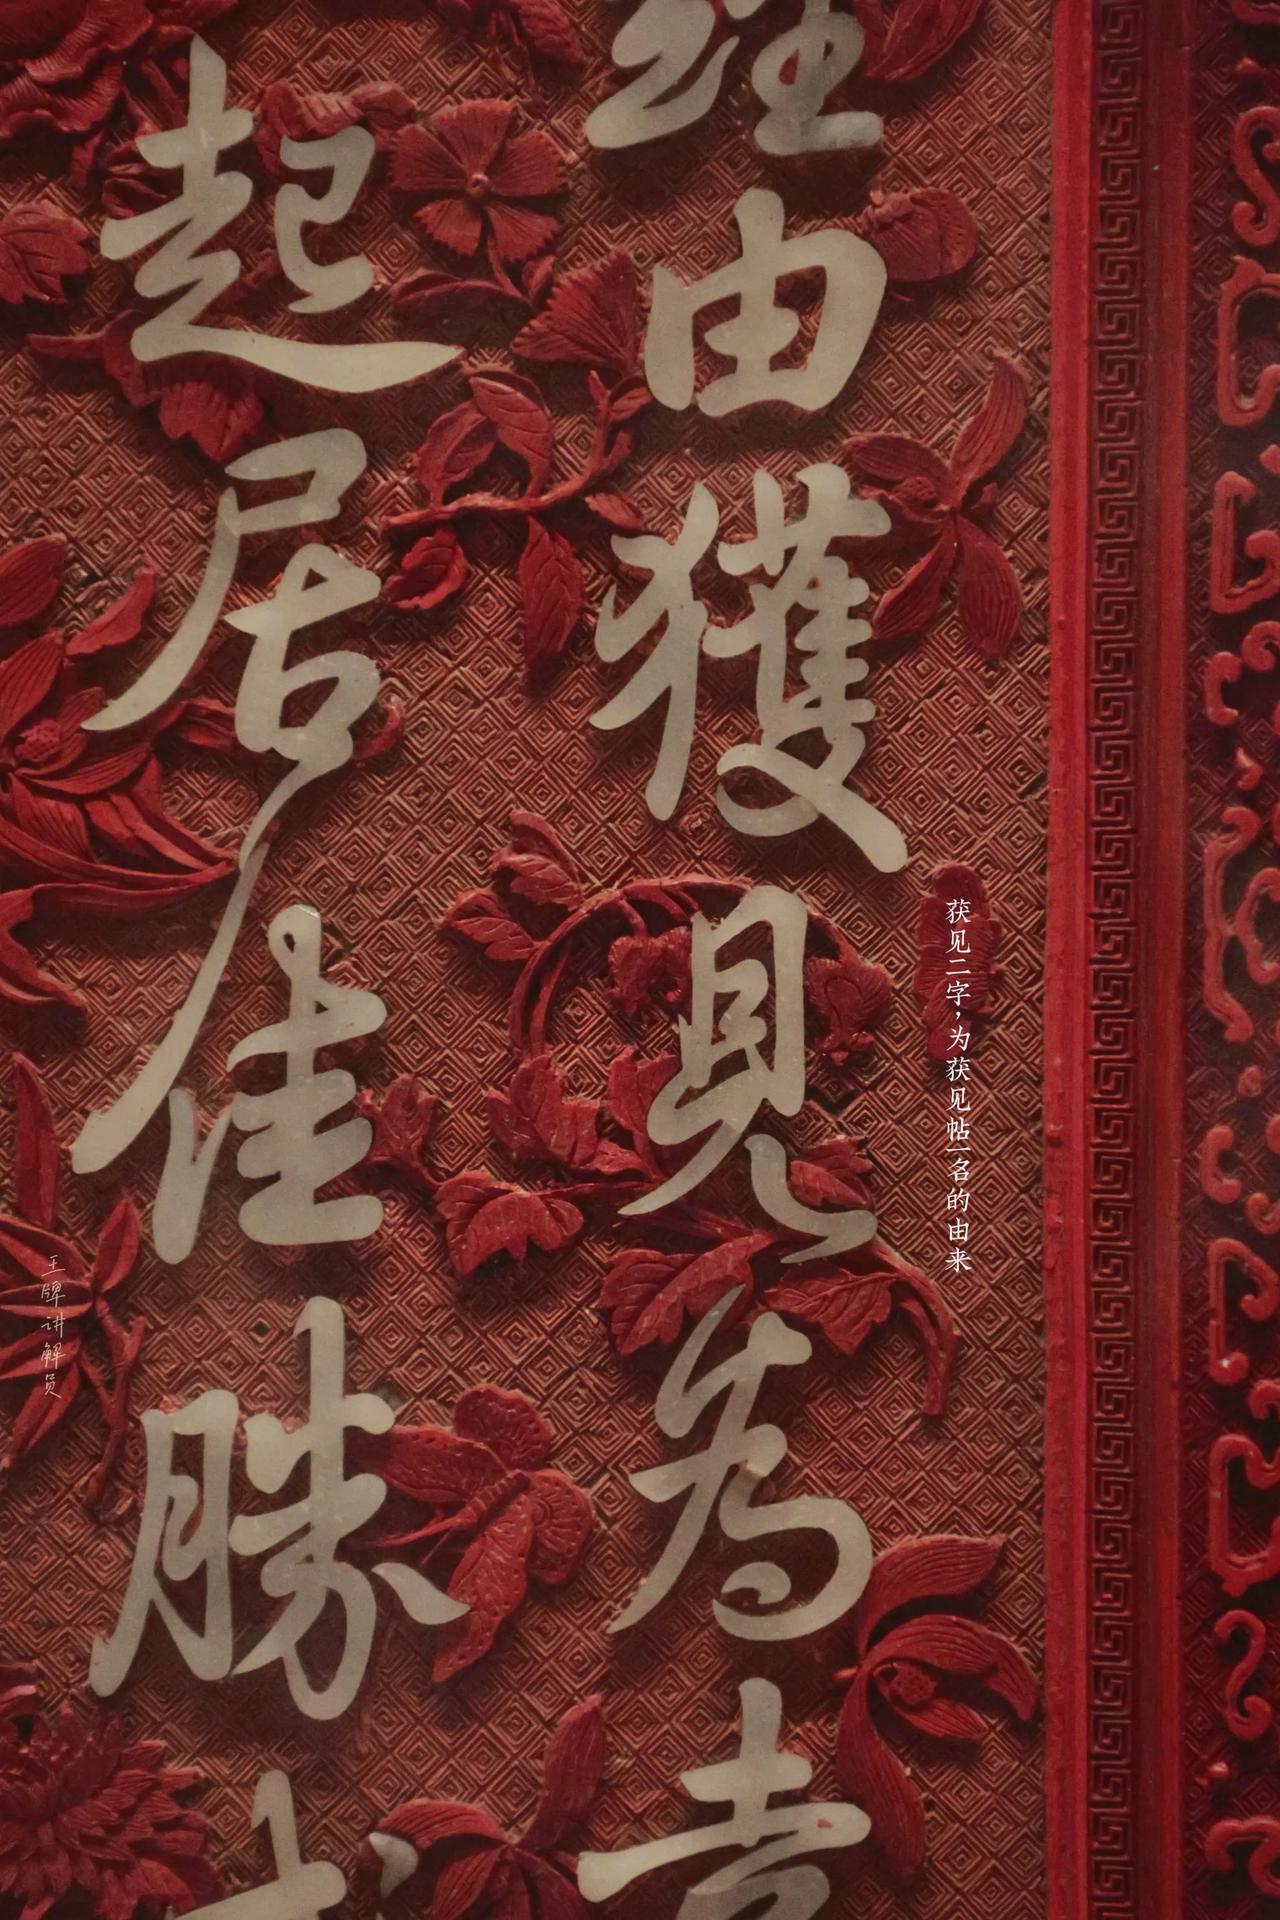 获见二字，为获见帖一名的由来
經由獲見為幸
起居佳勝
王牌讲解员